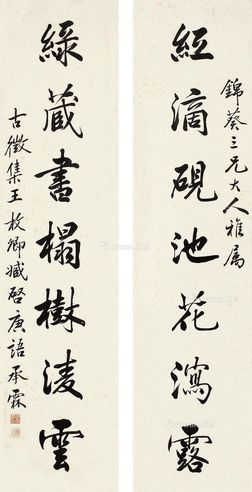 錦葵三兄大人雅属
紅滴硯池花瀉露
綠藏書榻樹淩雲
古徵集王枚卿臧啓庚語承霖